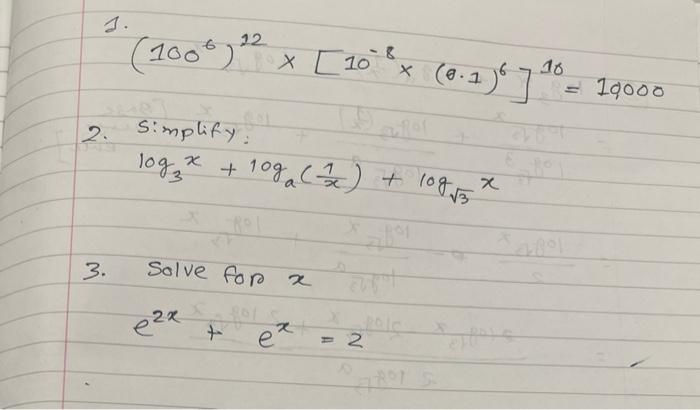 1.
(100⁶)¹² × [10⁻⁸ × (0.1)⁶]¹⁰ = 10000
2. Simplify:
log₃ x + logₐ (1/x) + log_√3 x
3. Solve for x
e²ˣ + eˣ = 2